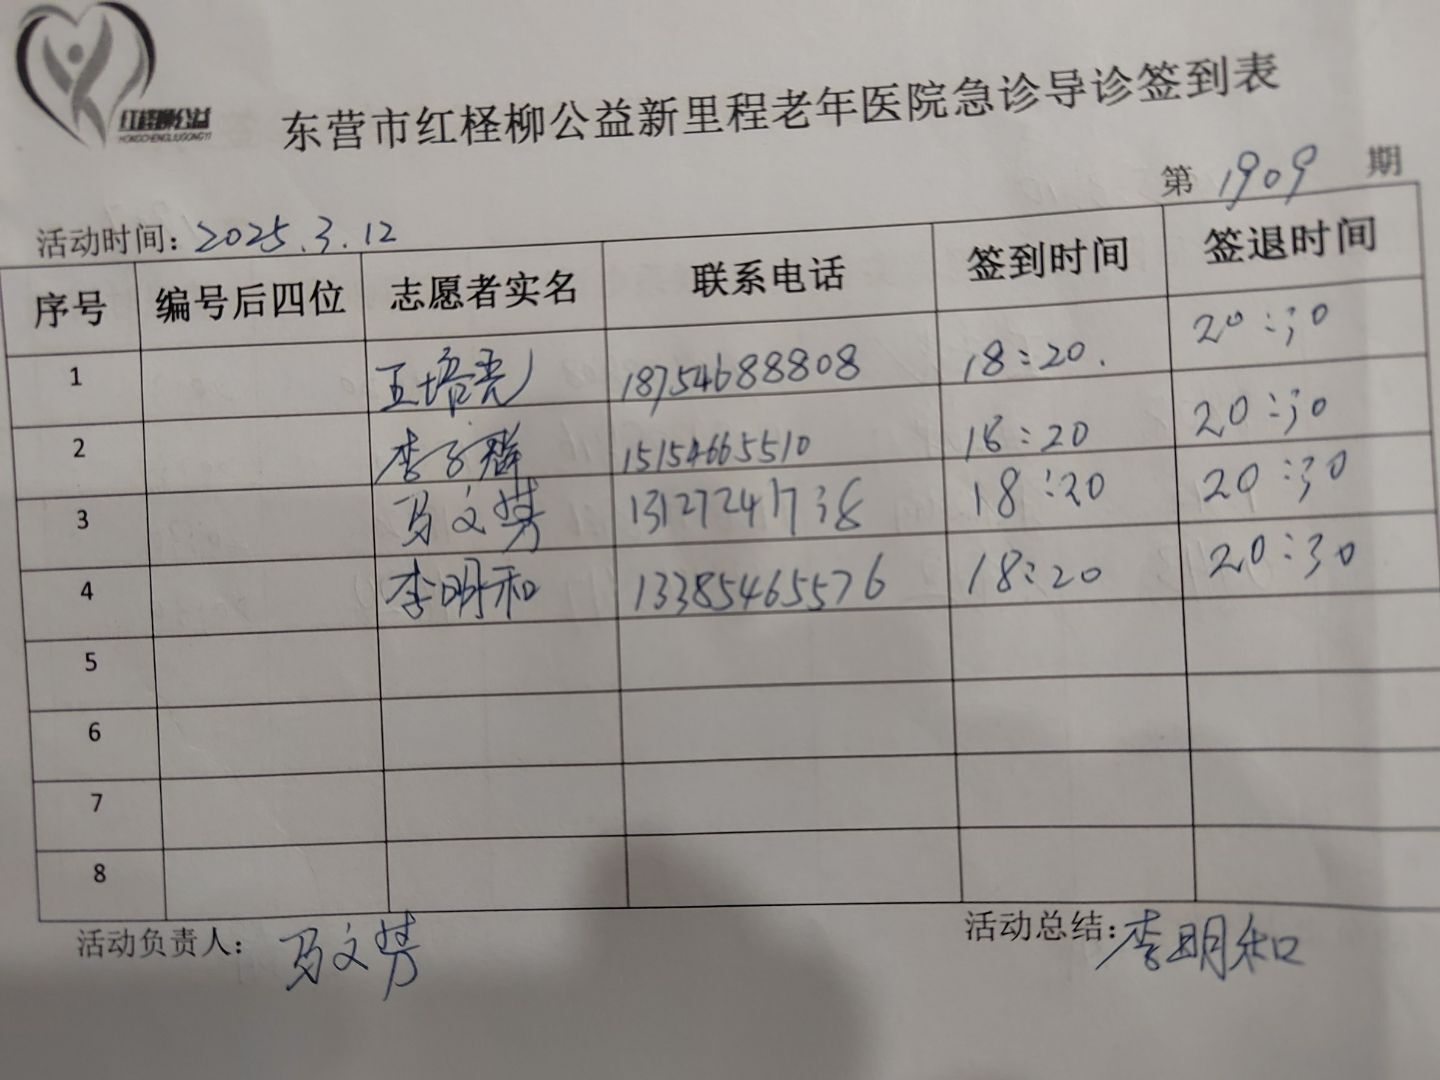 红柽柳公益
HONGCHENGLIUGONGYI
东营市红柽柳公益新里程老年医院急诊导诊签到表
第 1909 期
活动时间：2025.3.12
序号 编号后四位 志愿者实名 联系电话 签到时间 签退时间
1 王培亮 18754688808 18:20. 20:30
2 李子群 15154665510 18:20 20:30
3 马文芳 13127241738 18:20 20:30
4 李明和 13385465576 18:20 20:30
5
6
7
8
活动负责人：马文芳 活动总结：李明和